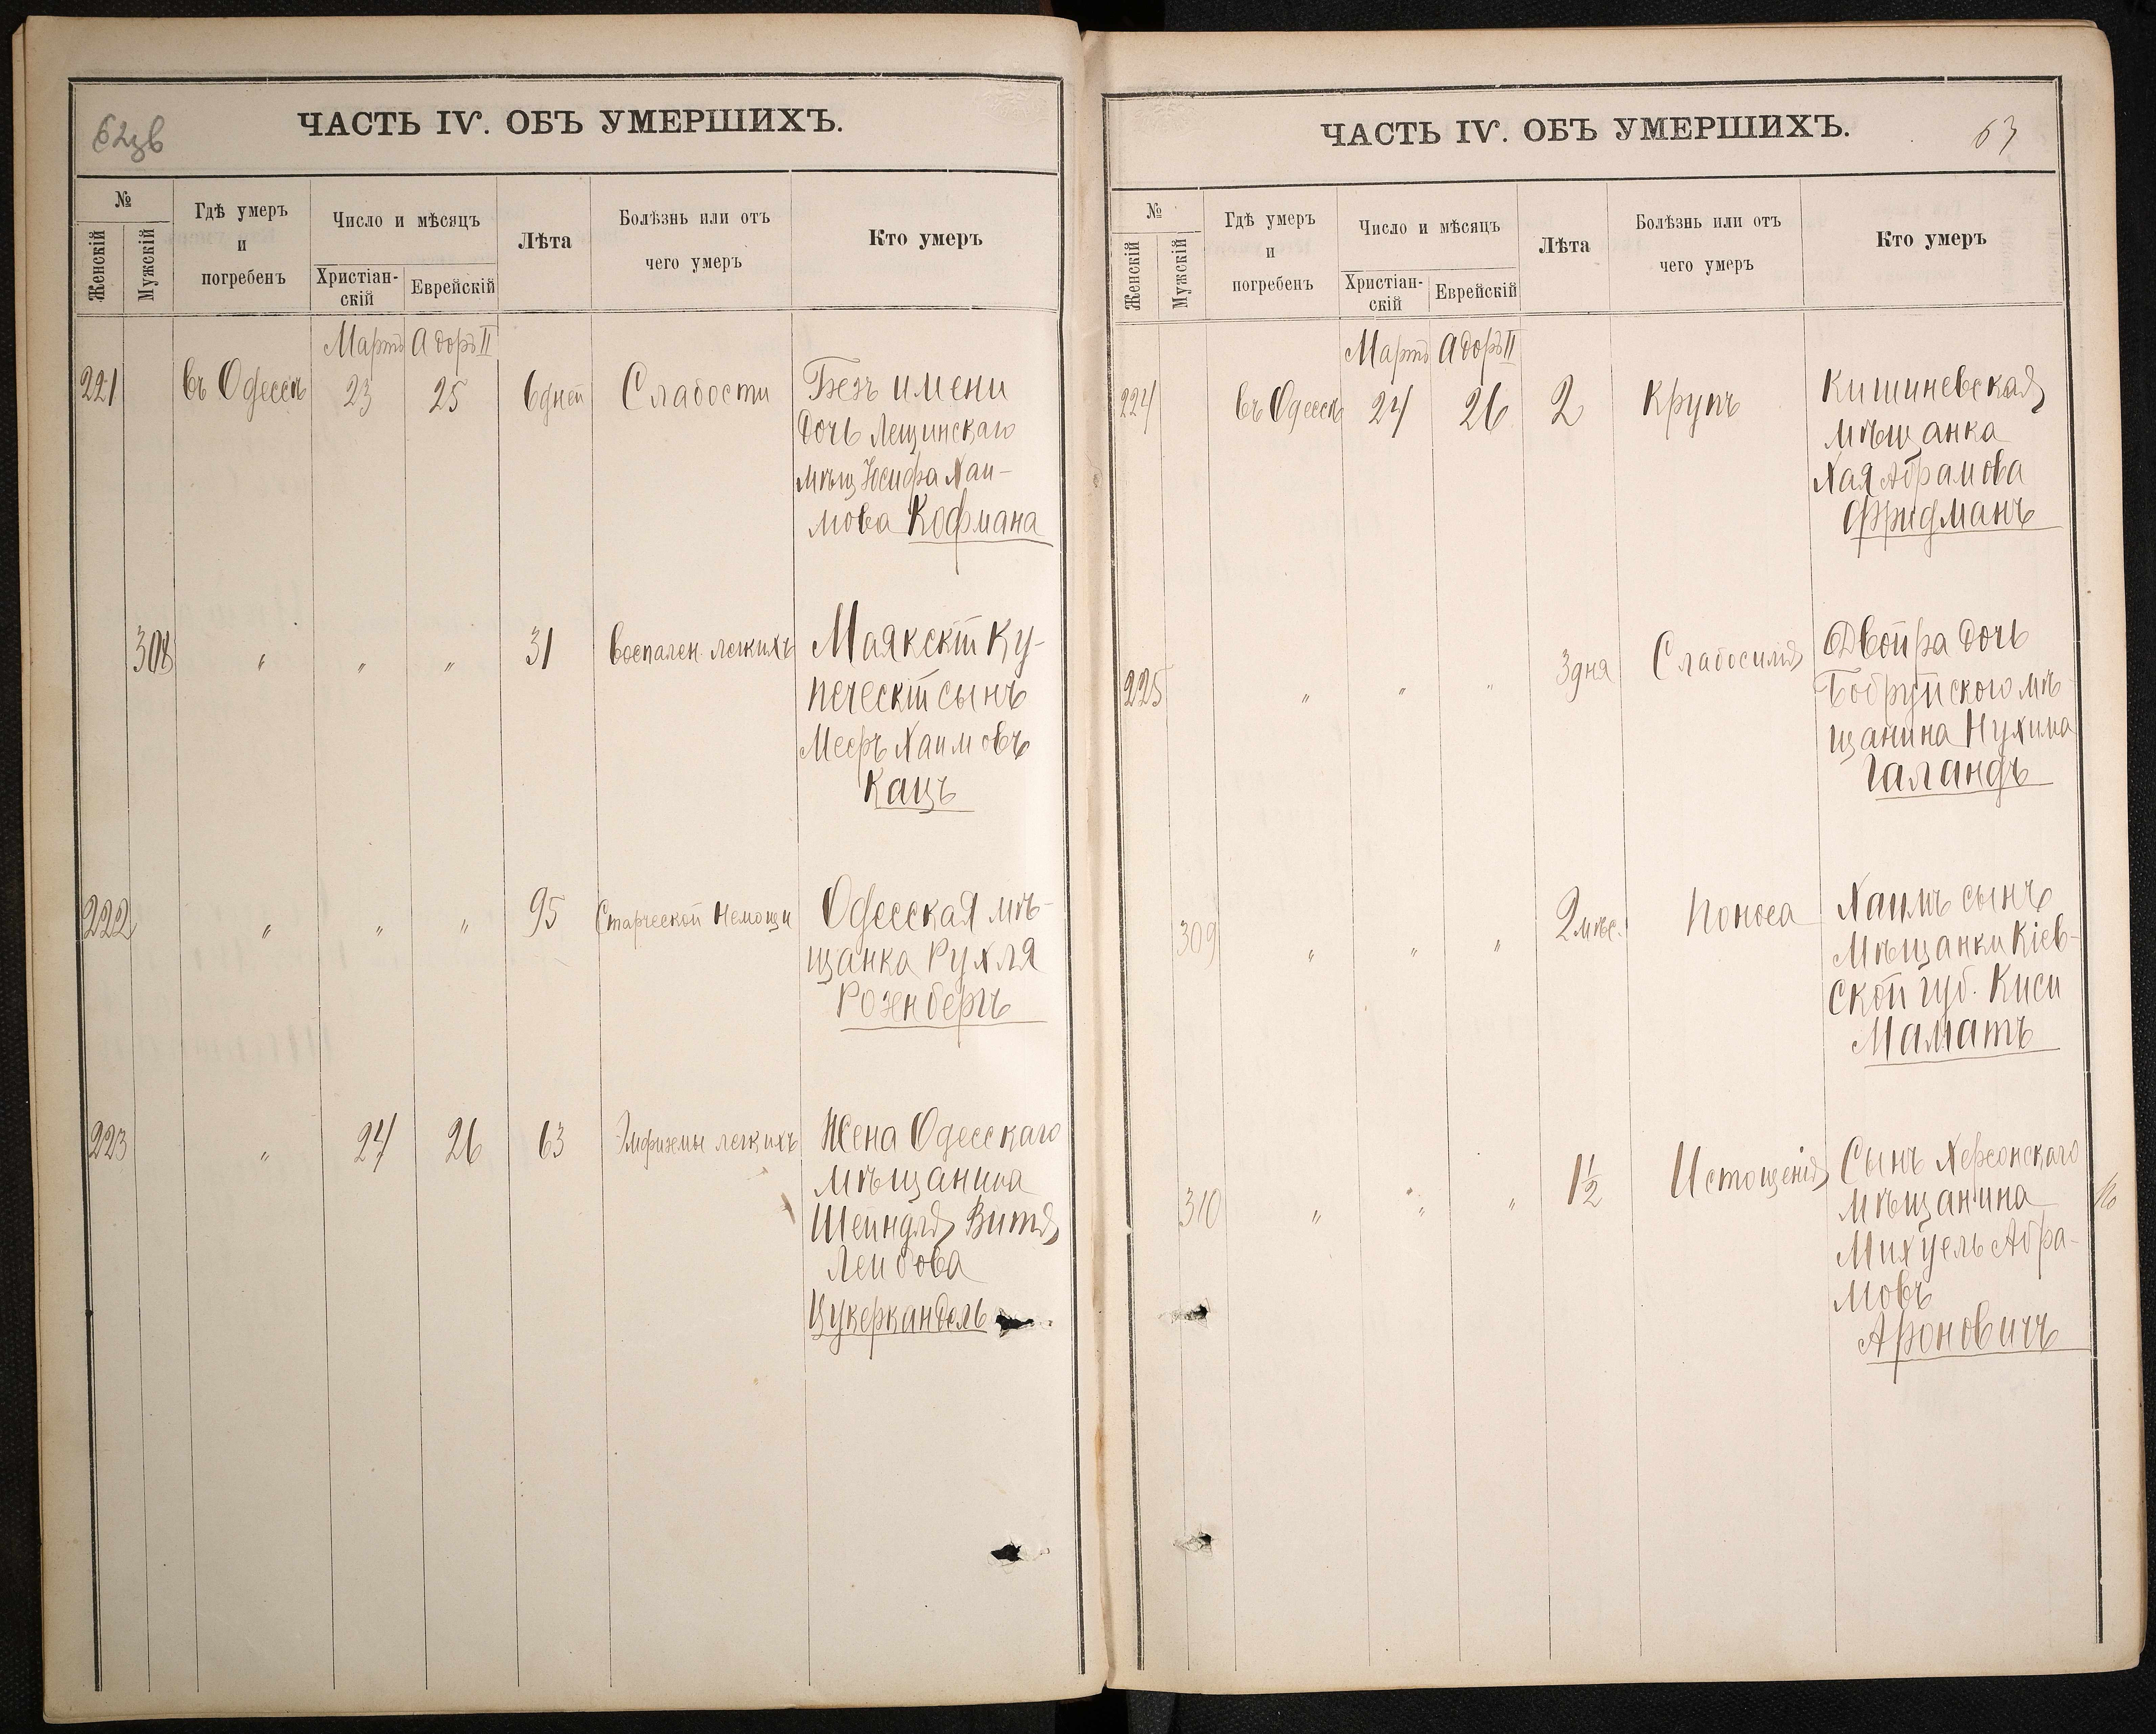 ЧАСТЬ IV. ОБЪ УМЕРШИХЪ.
№
Женскій
Мужскій
Гдѣ умеръ
и
погребенъ
Число и мѣсяцъ
Христіан-
скій
Еврейскій
Лѣта
Болѣзнь или отъ
чего умеръ
Кто умеръ
Мартъ Адоръ II
221 въ Одессѣ 23 25 6 дней Слабости Безъ имени
дочь Лещинскаго
мѣщ Іосифа Хаи-
мова Кофмана
308 " " " 31 Воспален. легкихъ Маякскій Ку-
печескій сынъ
Мееръ Хаимовъ
Кацъ
222 " " " 95 Старческой немощи Одесская мѣ-
щанка Рухля
Рознбергъ
223 " 24 26 63 Эмфиземы легкихъ Жена Одесскаго
мѣщанина
Шейндля Витя
Лейбова
Цукеркандель
ЧАСТЬ IV. ОБЪ УМЕРШИХЪ.
63
№
Женскій
Мужскій
Гдѣ умеръ
и
погребенъ
Число и мѣсяцъ
Христіан-
скій
Еврейскій
Лѣта
Болѣзнь или отъ
чего умеръ
Кто умеръ
Мартъ Адоръ II
224 въ Одессѣ 24 26 2 Крупъ Кишиневская
мѣщанка
Хая Абрамова
Фридманъ
225 " " " 3 дня Слабосилія Двойра дочь
Бобруйского мѣ-
щанина Нухима
Галандъ
309 " " " 2 мѣс. Поноса Хаимъ сынъ
Мѣщанки Кіев-
ской губ. Киси
Маматъ
310 " " " 1½ Истощенія Сынъ Херсонскаго
мѣщанина
Михуель Абра-
мовъ
Ароновичъ